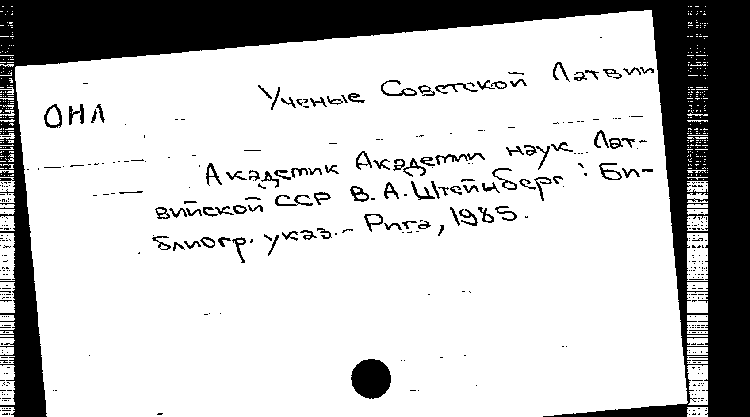 Ученые Советской Латвии
ОНЛ
Академик Академии наук Лат-
вийской ССР В. А. Штейнберг : Би-
блиогр. указ. - Рига, 1985.